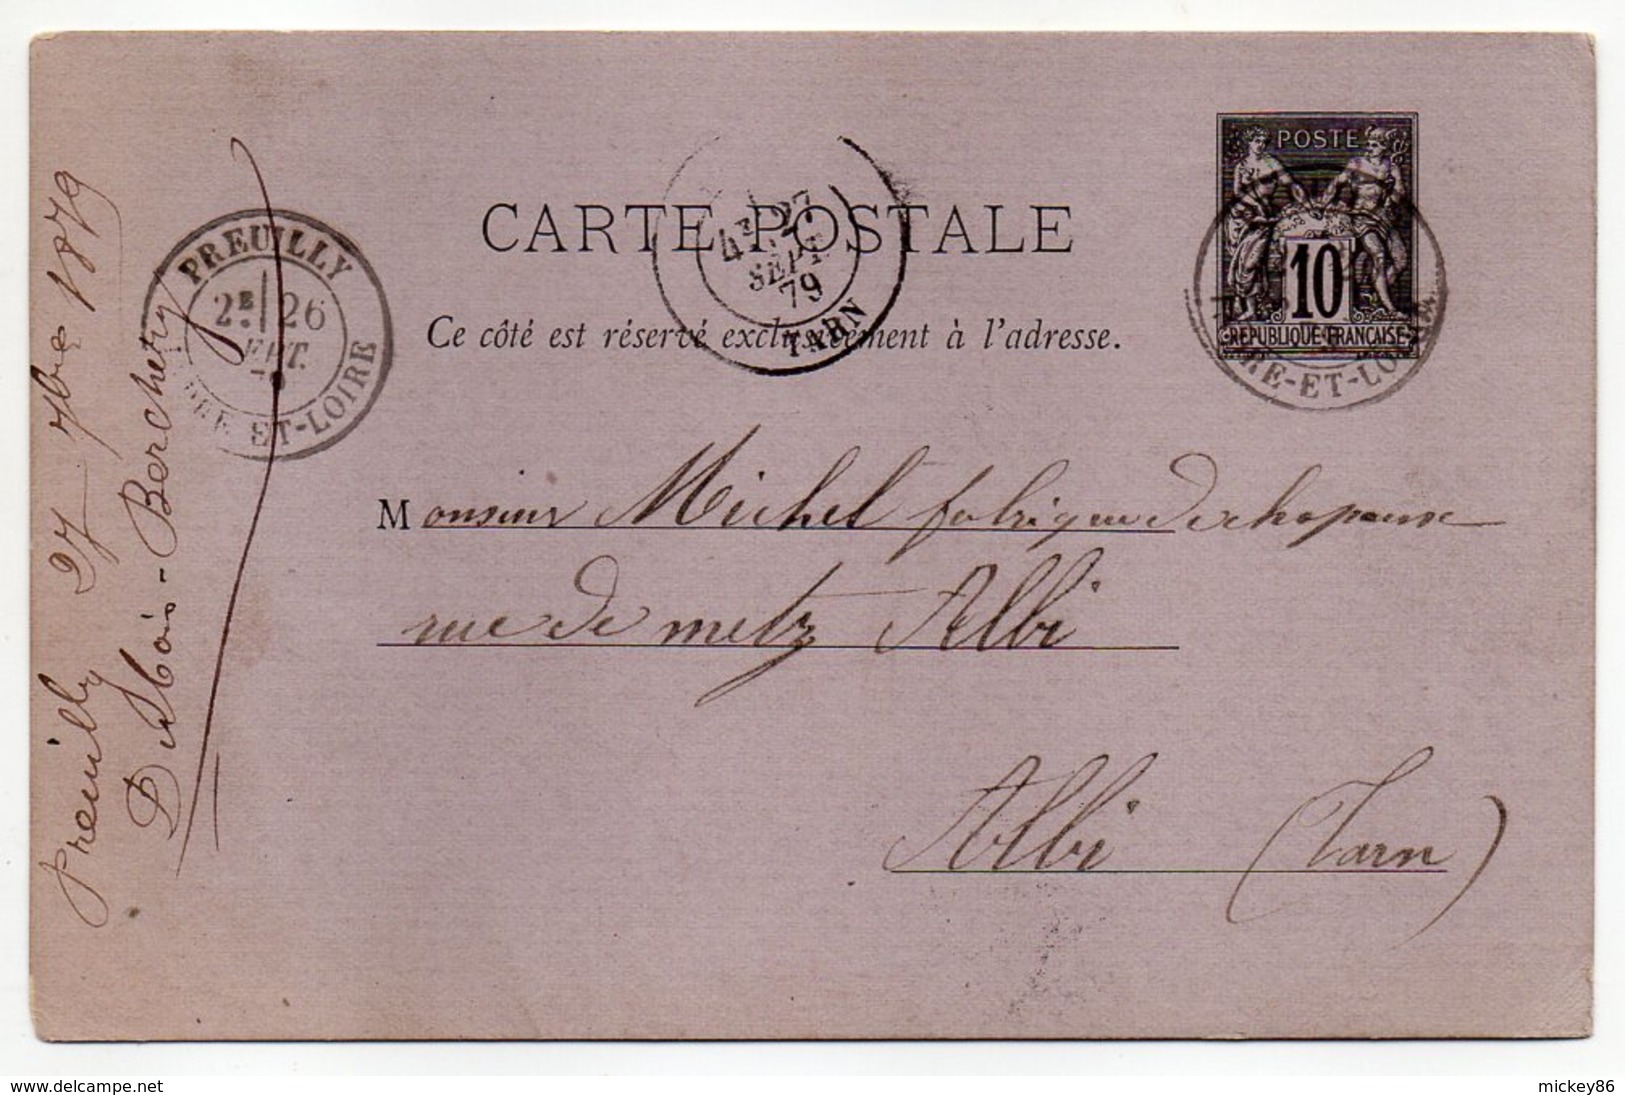 POSTE
10
REPUBLIQUE FRANÇAISE
CARTE POSTALE
Ce côté est réservé exclusivement à l'adresse.
4E 27
SEPT.
79
TARN
PREUILLY
2E 26
SEPT.
79
INDRE-ET-LOIRE
INDRE-ET-LOIRE
Monsieur Michel fabrique de chapeaux
rue de metz Albi
Albi (Tarn)
Preuilly 27 7bre 1879
Berchery
www.delcampe.net
mickey86